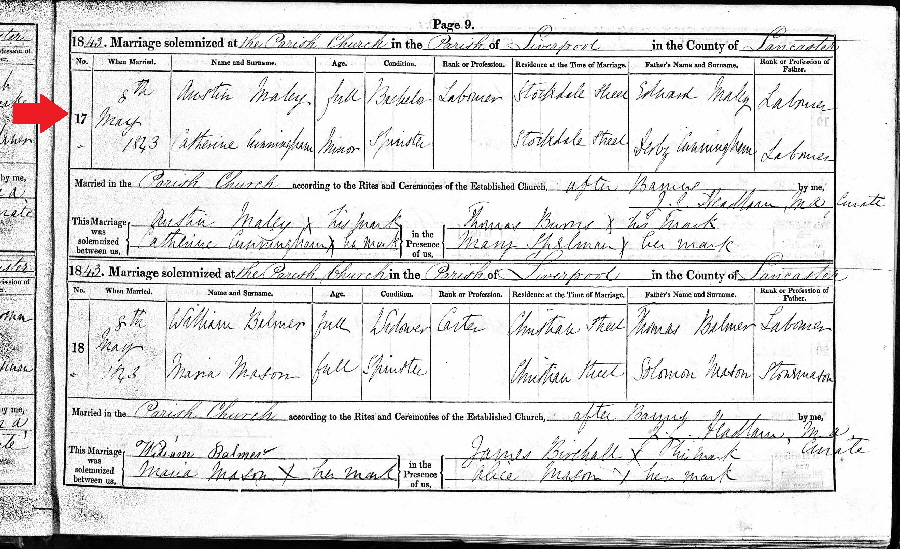 Page 9.
1843. Marriage solemnized at the Parish Church in the Parish of Liverpool in the County of Lancaster
No. When Married. Name and Surname. Age. Condition. Rank or Profession. Residence at the Time of Marriage. Father's Name and Surname. Rank or Profession of Father.
17 8th May 1843 Austin Maley full Bachelor Labourer Stockdale Street Edward Maley Labourer
Catherine Cunningham Minor Spinster Stockdale Street Cunningham Labourer
Married in the Parish Church according to the Rites and Ceremonies of the Established Church, after Banns by me,
J. Headlam M a Curate
This Marriage was solemnized between us, Austin Maley X his mark in the Presence of us, Thomas Burns X his mark
Catherine Cunningham X her mark Mary X her mark
1843. Marriage solemnized at the Parish Church in the Parish of Liverpool in the County of Lancaster
No. When Married. Name and Surname. Age. Condition. Rank or Profession. Residence at the Time of Marriage. Father's Name and Surname. Rank or Profession of Father.
18 8th May 1843 William Balmer full Widower Carter Christian Street Thomas Balmer Labourer
Maria Mason full Spinster Christian Street Solomon Mason Stonemason
Married in the Parish Church according to the Rites and Ceremonies of the Established Church, after Banns by me,
J. Headlam, M a Curate
This Marriage was solemnized between us, William Balmer in the Presence of us, James Birchall X his mark
Maria Mason X her mark Alice Mason X her mark